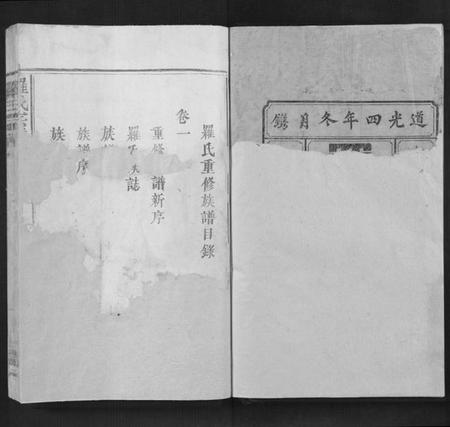 道光四年冬月鐫
羅氏重修族譜目錄
卷一
重修 譜新序
羅 誌
族
族譜序
族
羅氏